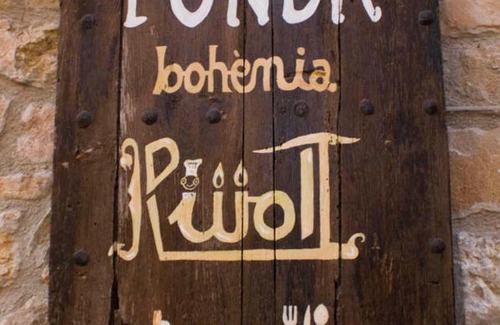 FONDA
bohèmia
Riuot